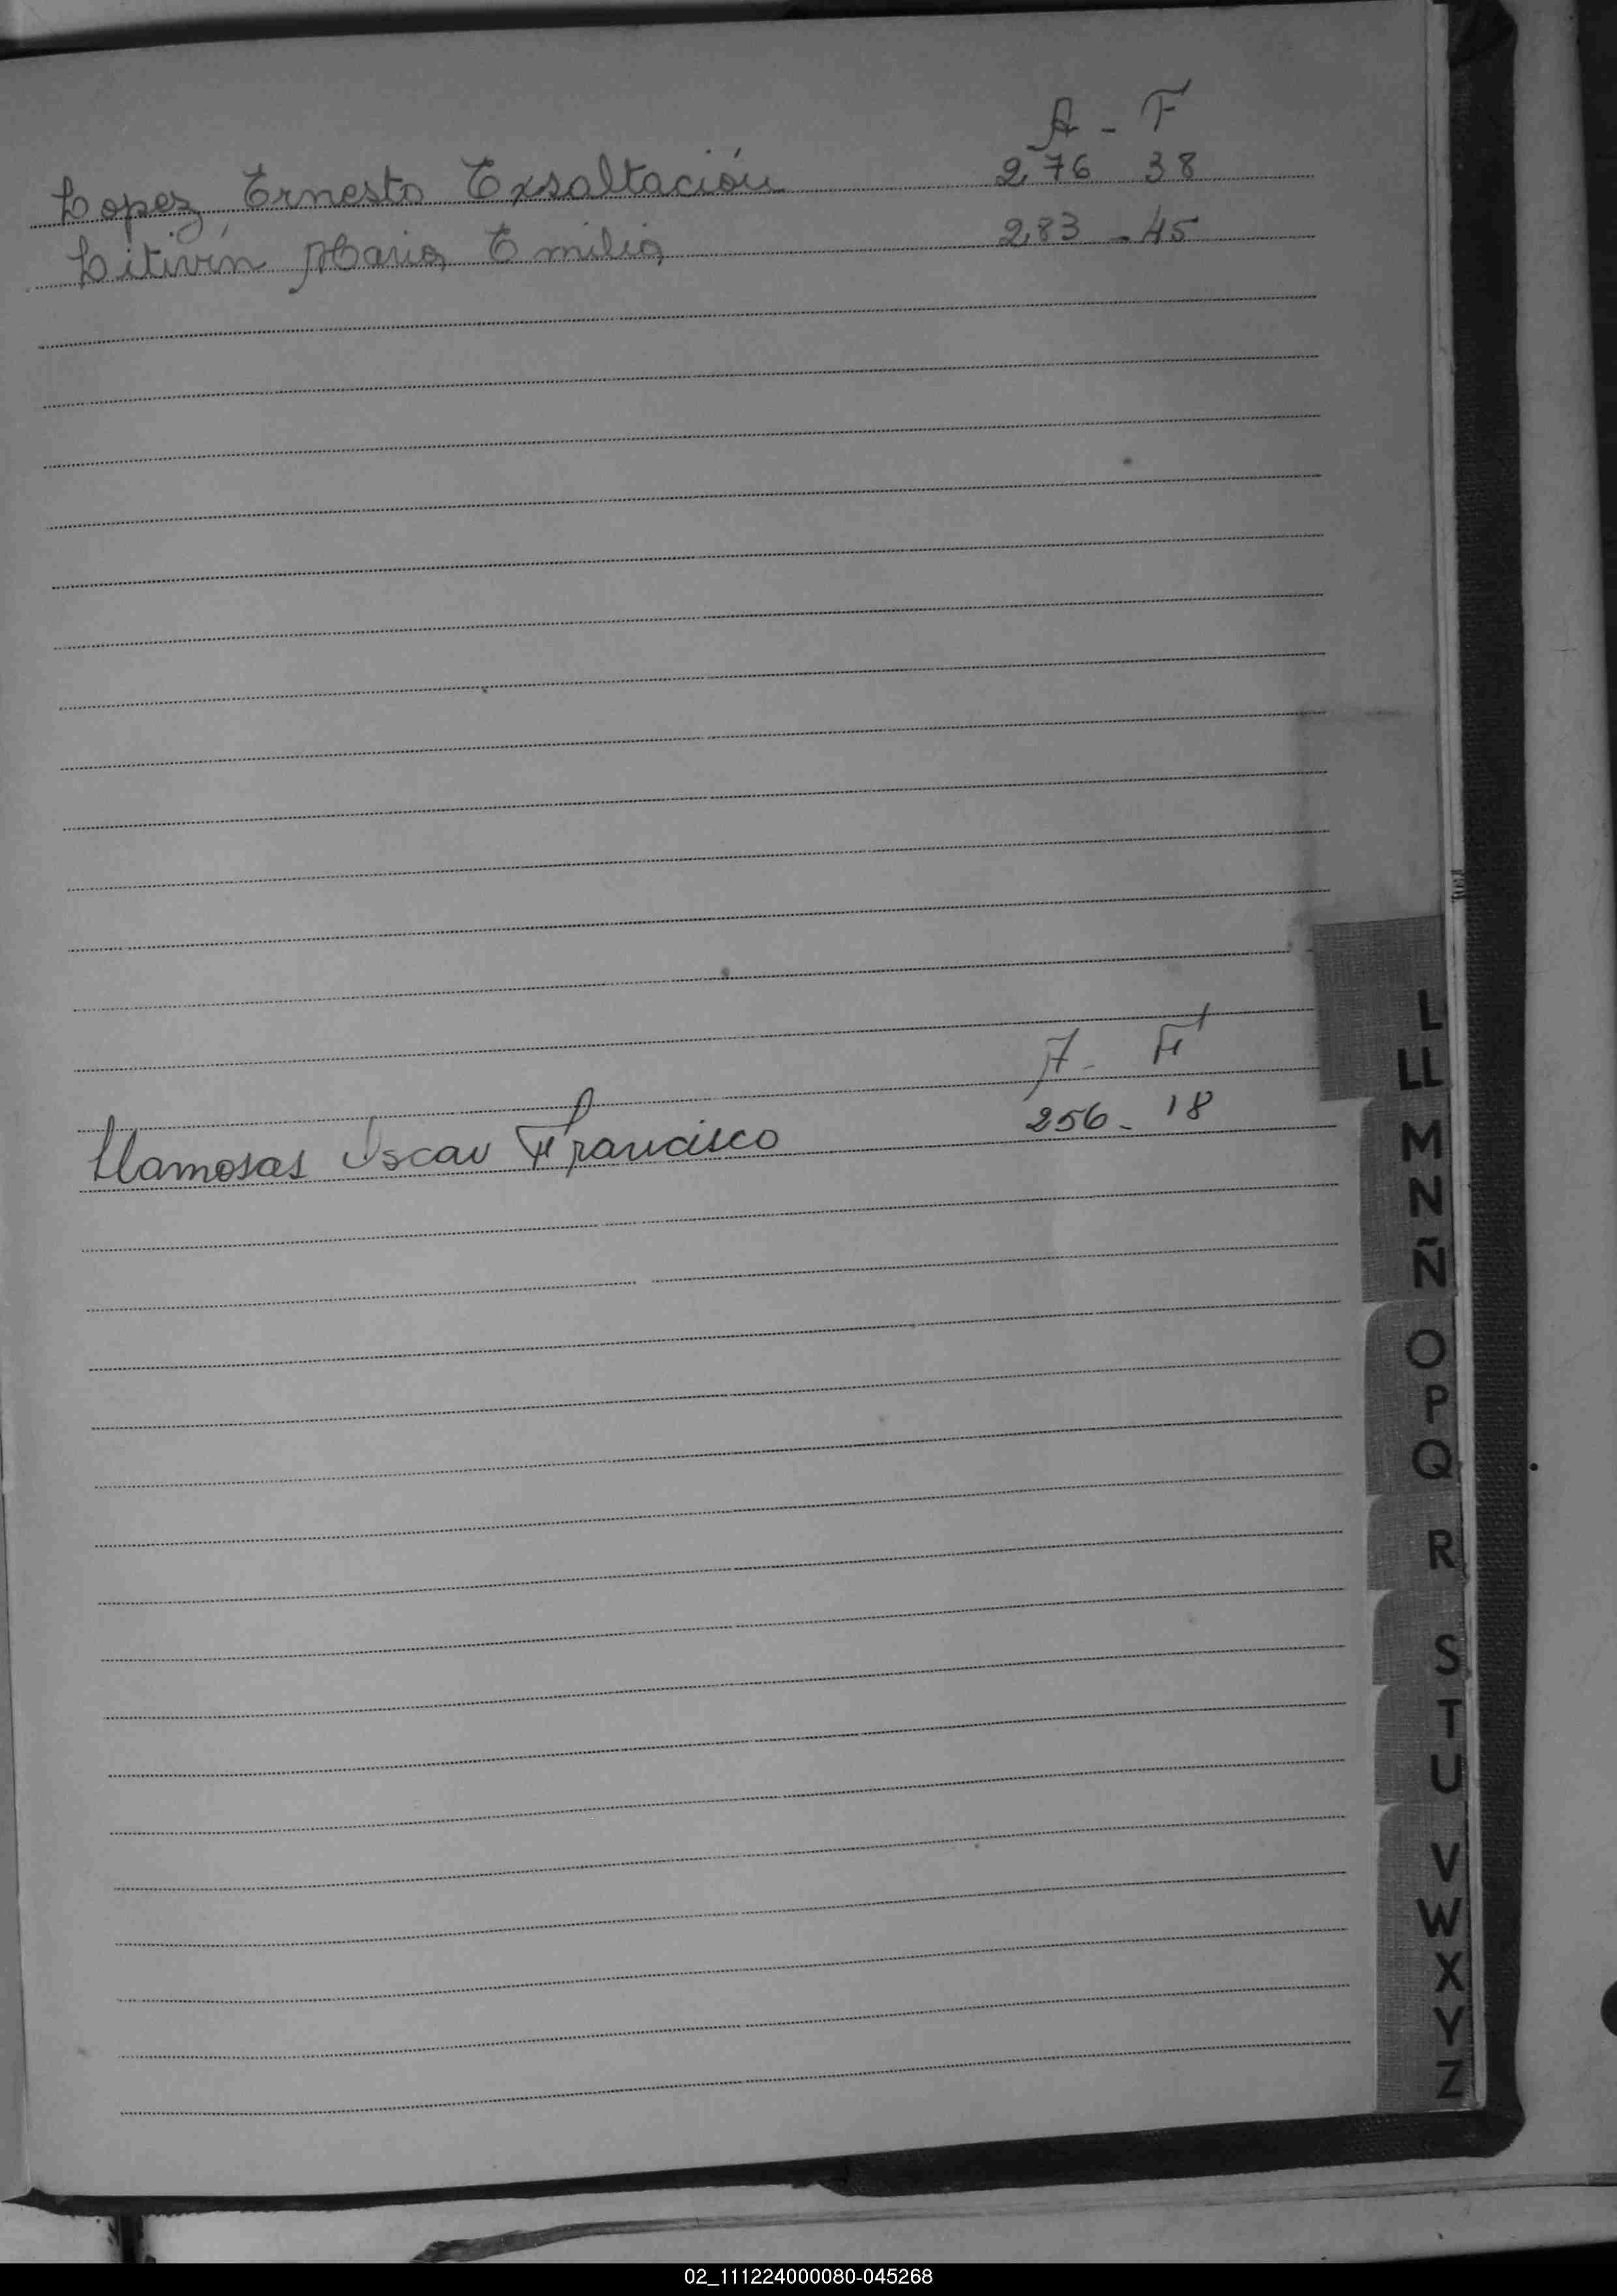 A - F
Lopez, Ernesto Exsaltación 276 38
Litivín Maria Emilia 283 - 45
A - F
Llamosas Oscar Francisco 256 - 18
L
LL
M
N
Ñ
O
P
Q
R
S
T
U
V
W
X
Y
Z
02_111224000080-045268